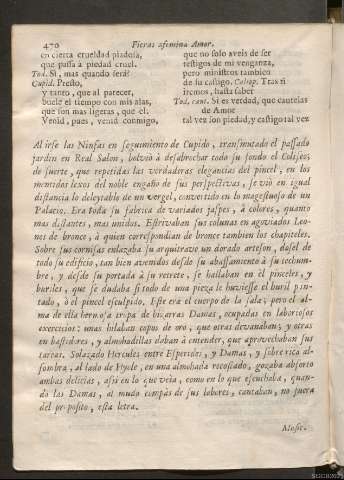 470 Fieras afemina Amor.
en cierta crueldad piadosa,
que passa à piedad cruel.
Tod. Si, mas quando serà?
Cupid. Presto,
y tanto, que al parecer,
buele el tiempo con mis alas,
que son mas ligeras, que èl.
Venid, pues, venid conmigo,
que no solo aveis de ser
testigos de mi venganza,
pero ministros tambien
de su castigo. Caliop. Tras ti
iremos, hasta saber
Tod. cant. Si es verdad, que cautelas
de Amor
tal vez son piedad, y castigo tal vez
Al irse las Ninfas en seguimiento de Cupido, transmutado el passado
jardin en Real Salon, bolviò à desabrochar todo su fondo el Coliseo;
de suerte, que repetidas las verdaderas elegancias del pincel, en los
mentidos lexos del noble engaño de sus perspectivas, se viò en igual
distancia lo deleytable de un vergel, convertido en lo magestuoso de un
Palacio. Era toda su fabrica de variados jaspes, à colores, quanto
mas distantes, mas unidos. Estrivaban sus colunas en agoviados Leo-
nes de bronce, à quien correspondian de bronce tambien los chapiteles.
Sobre sus cornisas enlazaba su arquitrave un dorado arteson, dosel de
todo su edificio, tan bien avenidos desde su abassamento à su techum-
bre, y desde su portada à su retrete, se hallaban en èl pinceles, y
buriles, que se dudaba si todo de una pieza le huviesse el buril pin-
tado, ò el pincel esculpido. Este era el cuerpo de la sala; pero el al-
ma de ella hermosa tropa de bizarras Damas, ocupadas en laboriosos
exercicios: unas hilaban copos de oro, que otras devanaban; y otras
en bastidores, y almohadillas daban à entender, que aprovechaban sus
tareas. Solazado Hercules entre Esperides, y Damas, y sobre rica al-
fombra, al lado de Hyole, en una almohada recostado, gozaba absorto
ambas delicias, assi en lo que veìa, como en lo que escuchaba, quan-
do las Damas, al mudo compàs de sus labores, cantaban, no fuera
del proposito, esta letra.